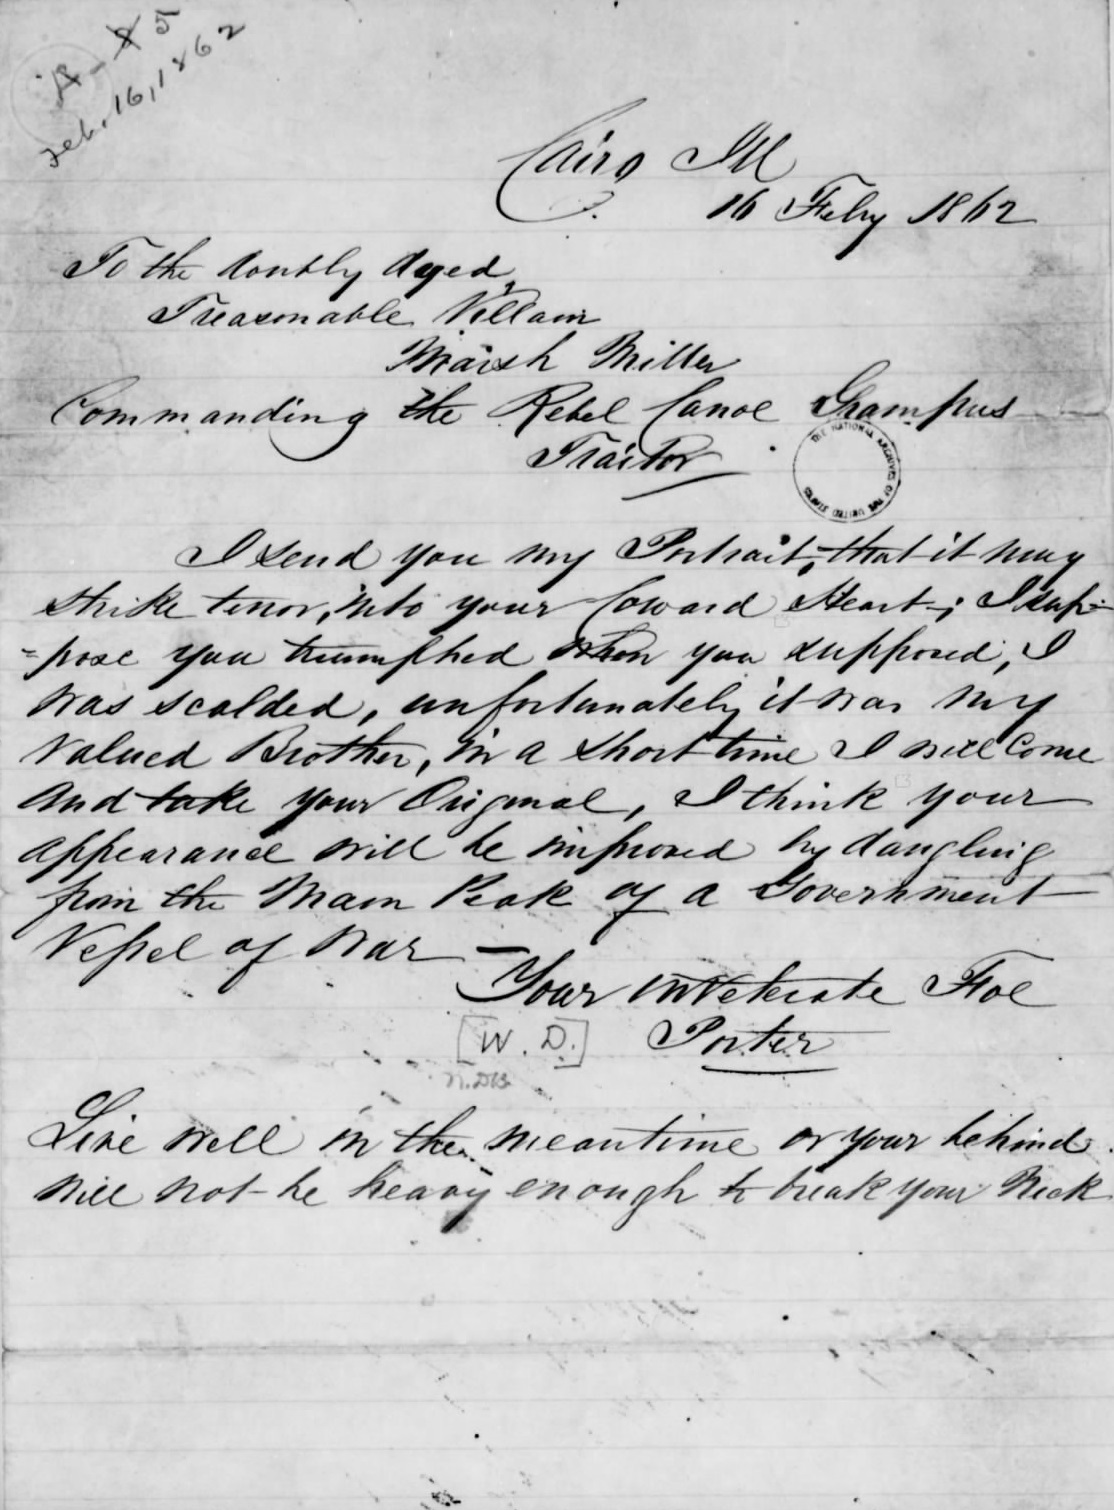 A-5
Feb. 16, 1862
Cairo Ill
16 Feby 1862
To the doubly dyed,
Treasonable Villain
Marsh Miller
Commanding the Rebel Canoe Grampus
THE NATIONAL ARCHIVES OF THE UNITED STATES
Traitor
I send you my Portrait, that it may
strike terror, into your Coward Heart; I sup=
=pose you triumphed when you supposed, I
was scalded, unfortunately it was my
valued Brother, in a short time I will come
and take your Original, I think your
appearance will be improved by dangling
from the Main Peak of a Government
Vessel of War —
Your inveterate Foe
[W. D.] Porter
Live well in the meantime or your behind
will not be heavy enough to break your Neck